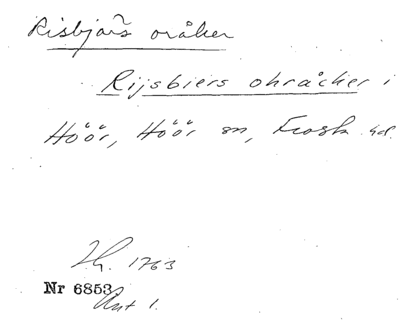 Risbjärs oråker
Rijsbiers ohråcker i
Höör, Höör sn, Frosta hd.
Lh. 1763
Nr 6853
Akt 1.